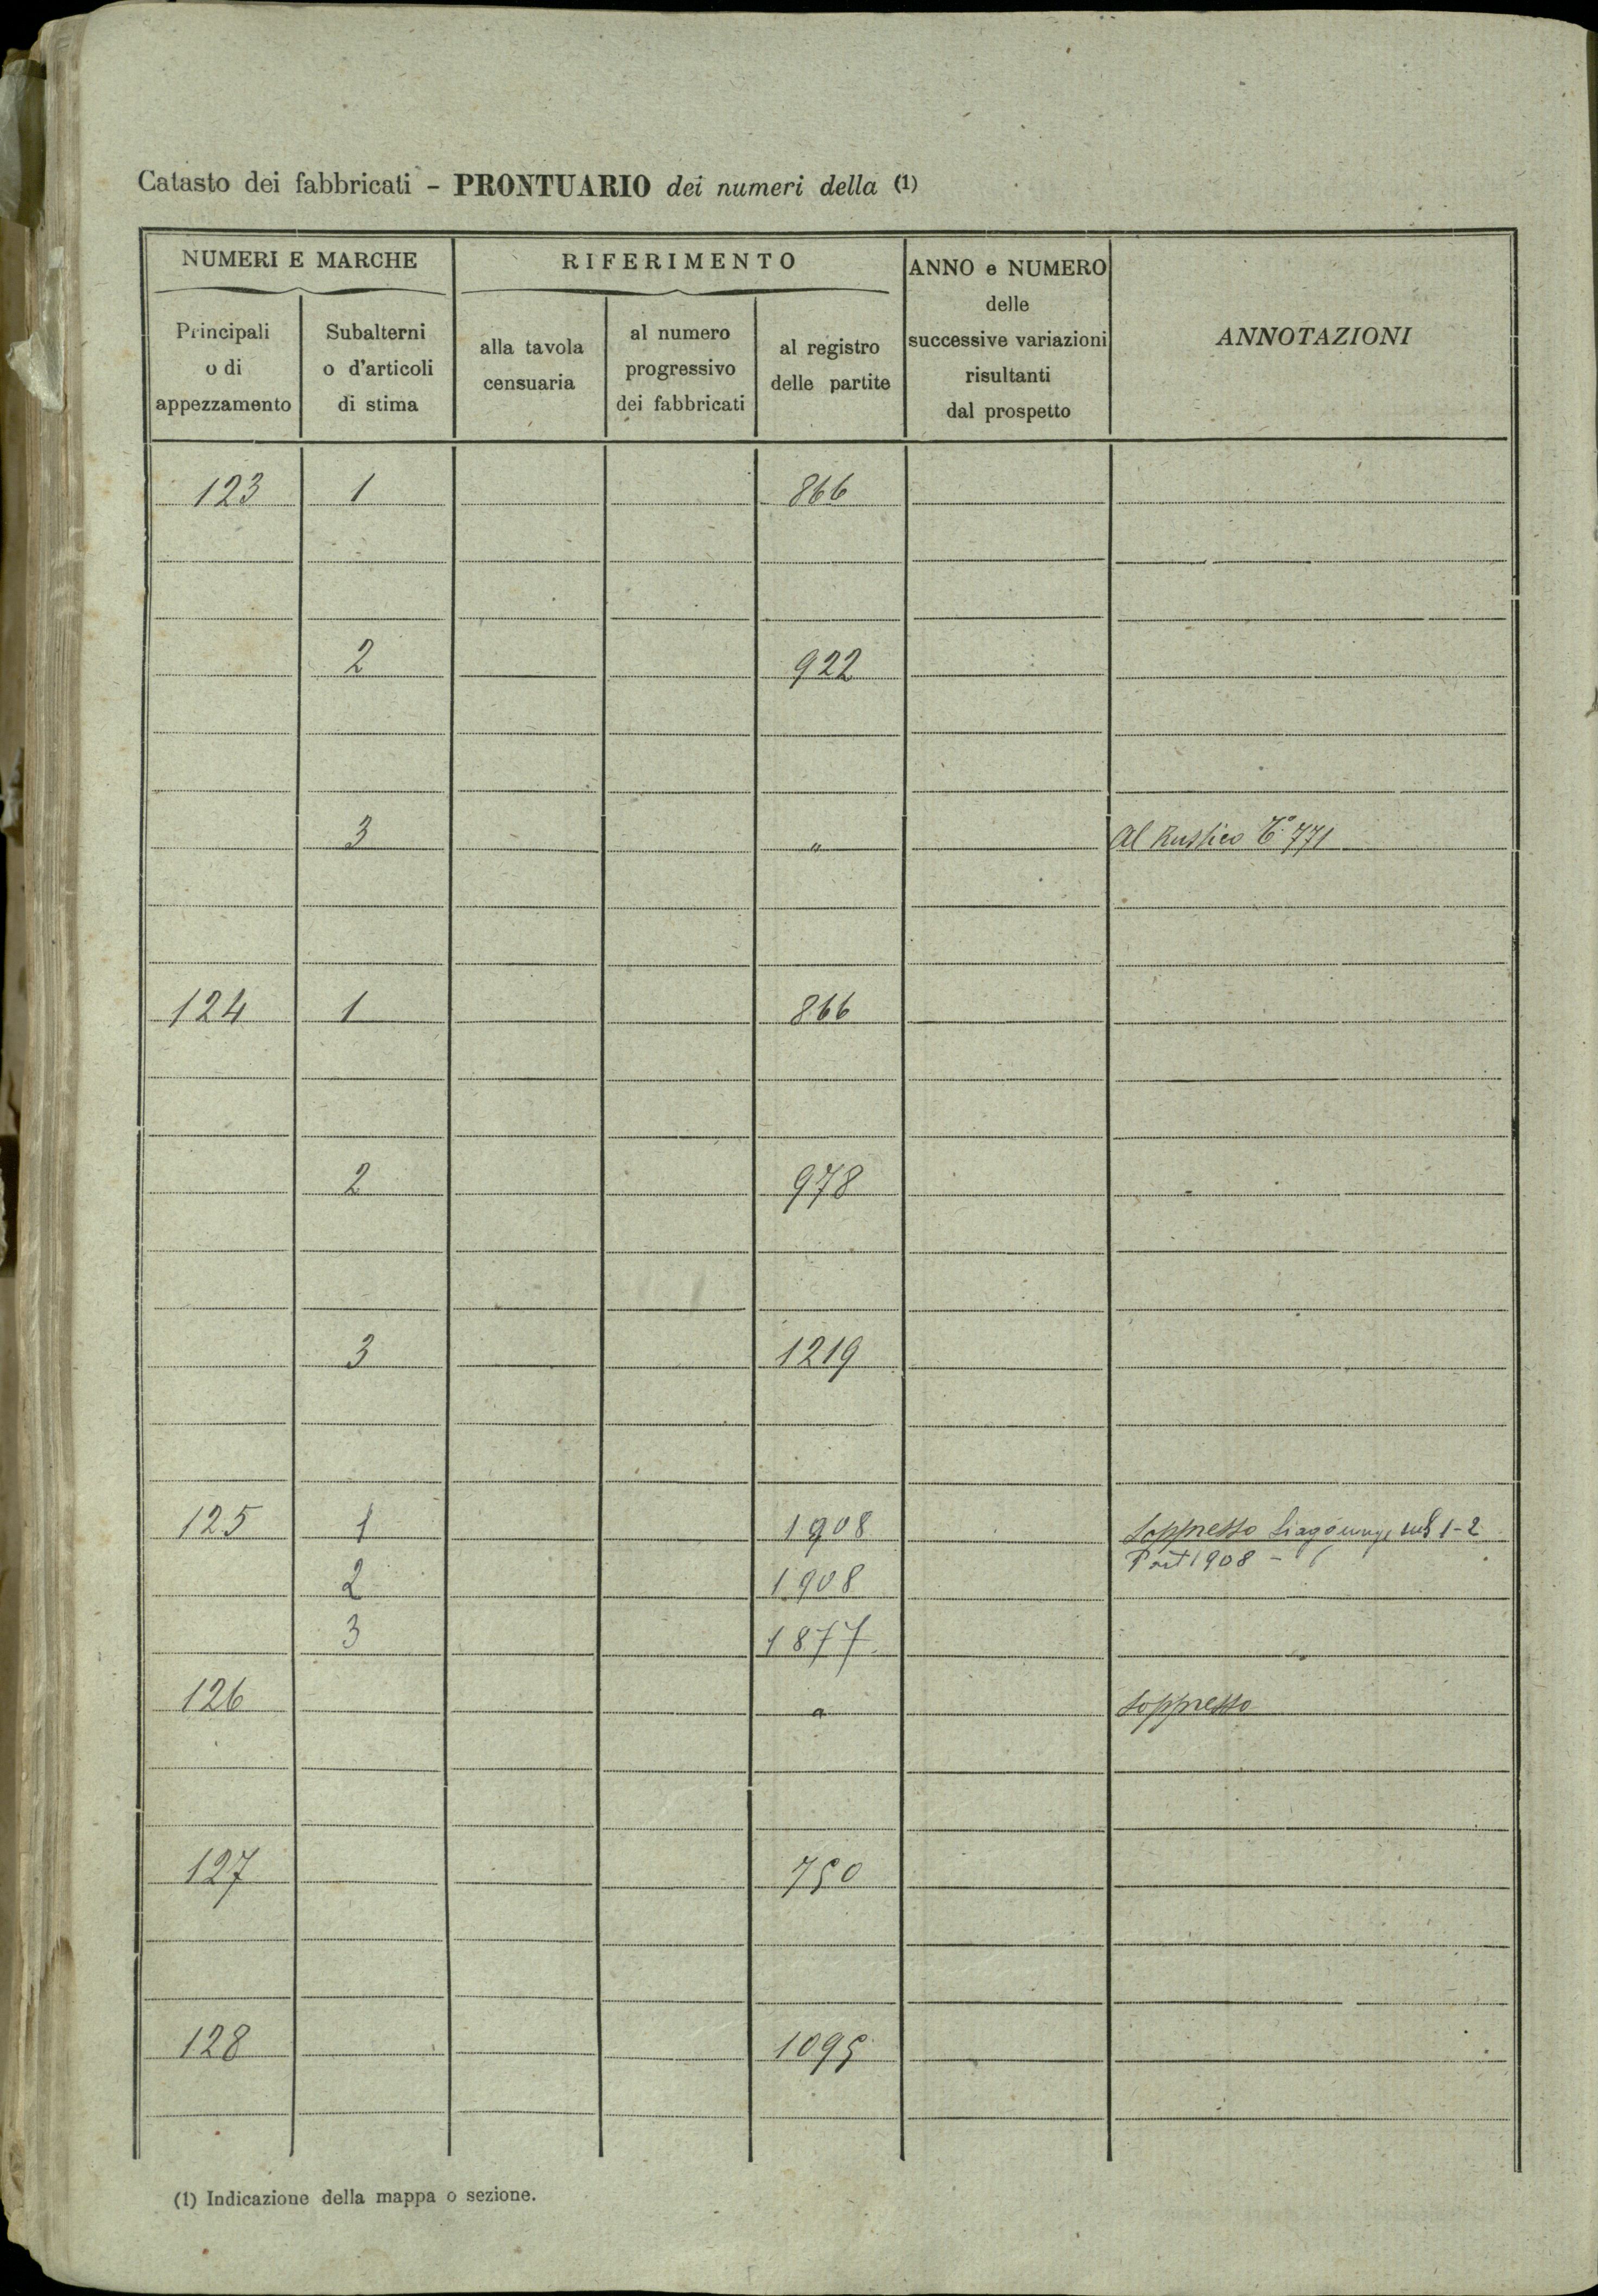 Catasto dei fabbricati - PRONTUARIO dei numeri della (1)
NUMERI E MARCHE
RIFERIMENTO
ANNO e NUMERO
delle
successive variazioni
risultanti
dal prospetto
ANNOTAZIONI
Principali
o di
appezzamento
Subalterni
o d'articoli
di stima
alla tavola
censuaria
al numero
progressivo
dei fabbricati
al registro
delle partite
123 1 866
2 922
3 " Al Rustico 771
124 1 866
2 978
3 1219
125 1 1908 Soppresso sub 1-2
Part 1908 -
2 1908
3 1877
126 " Soppresso
127 750
128 1095
(1) Indicazione della mappa o sezione.